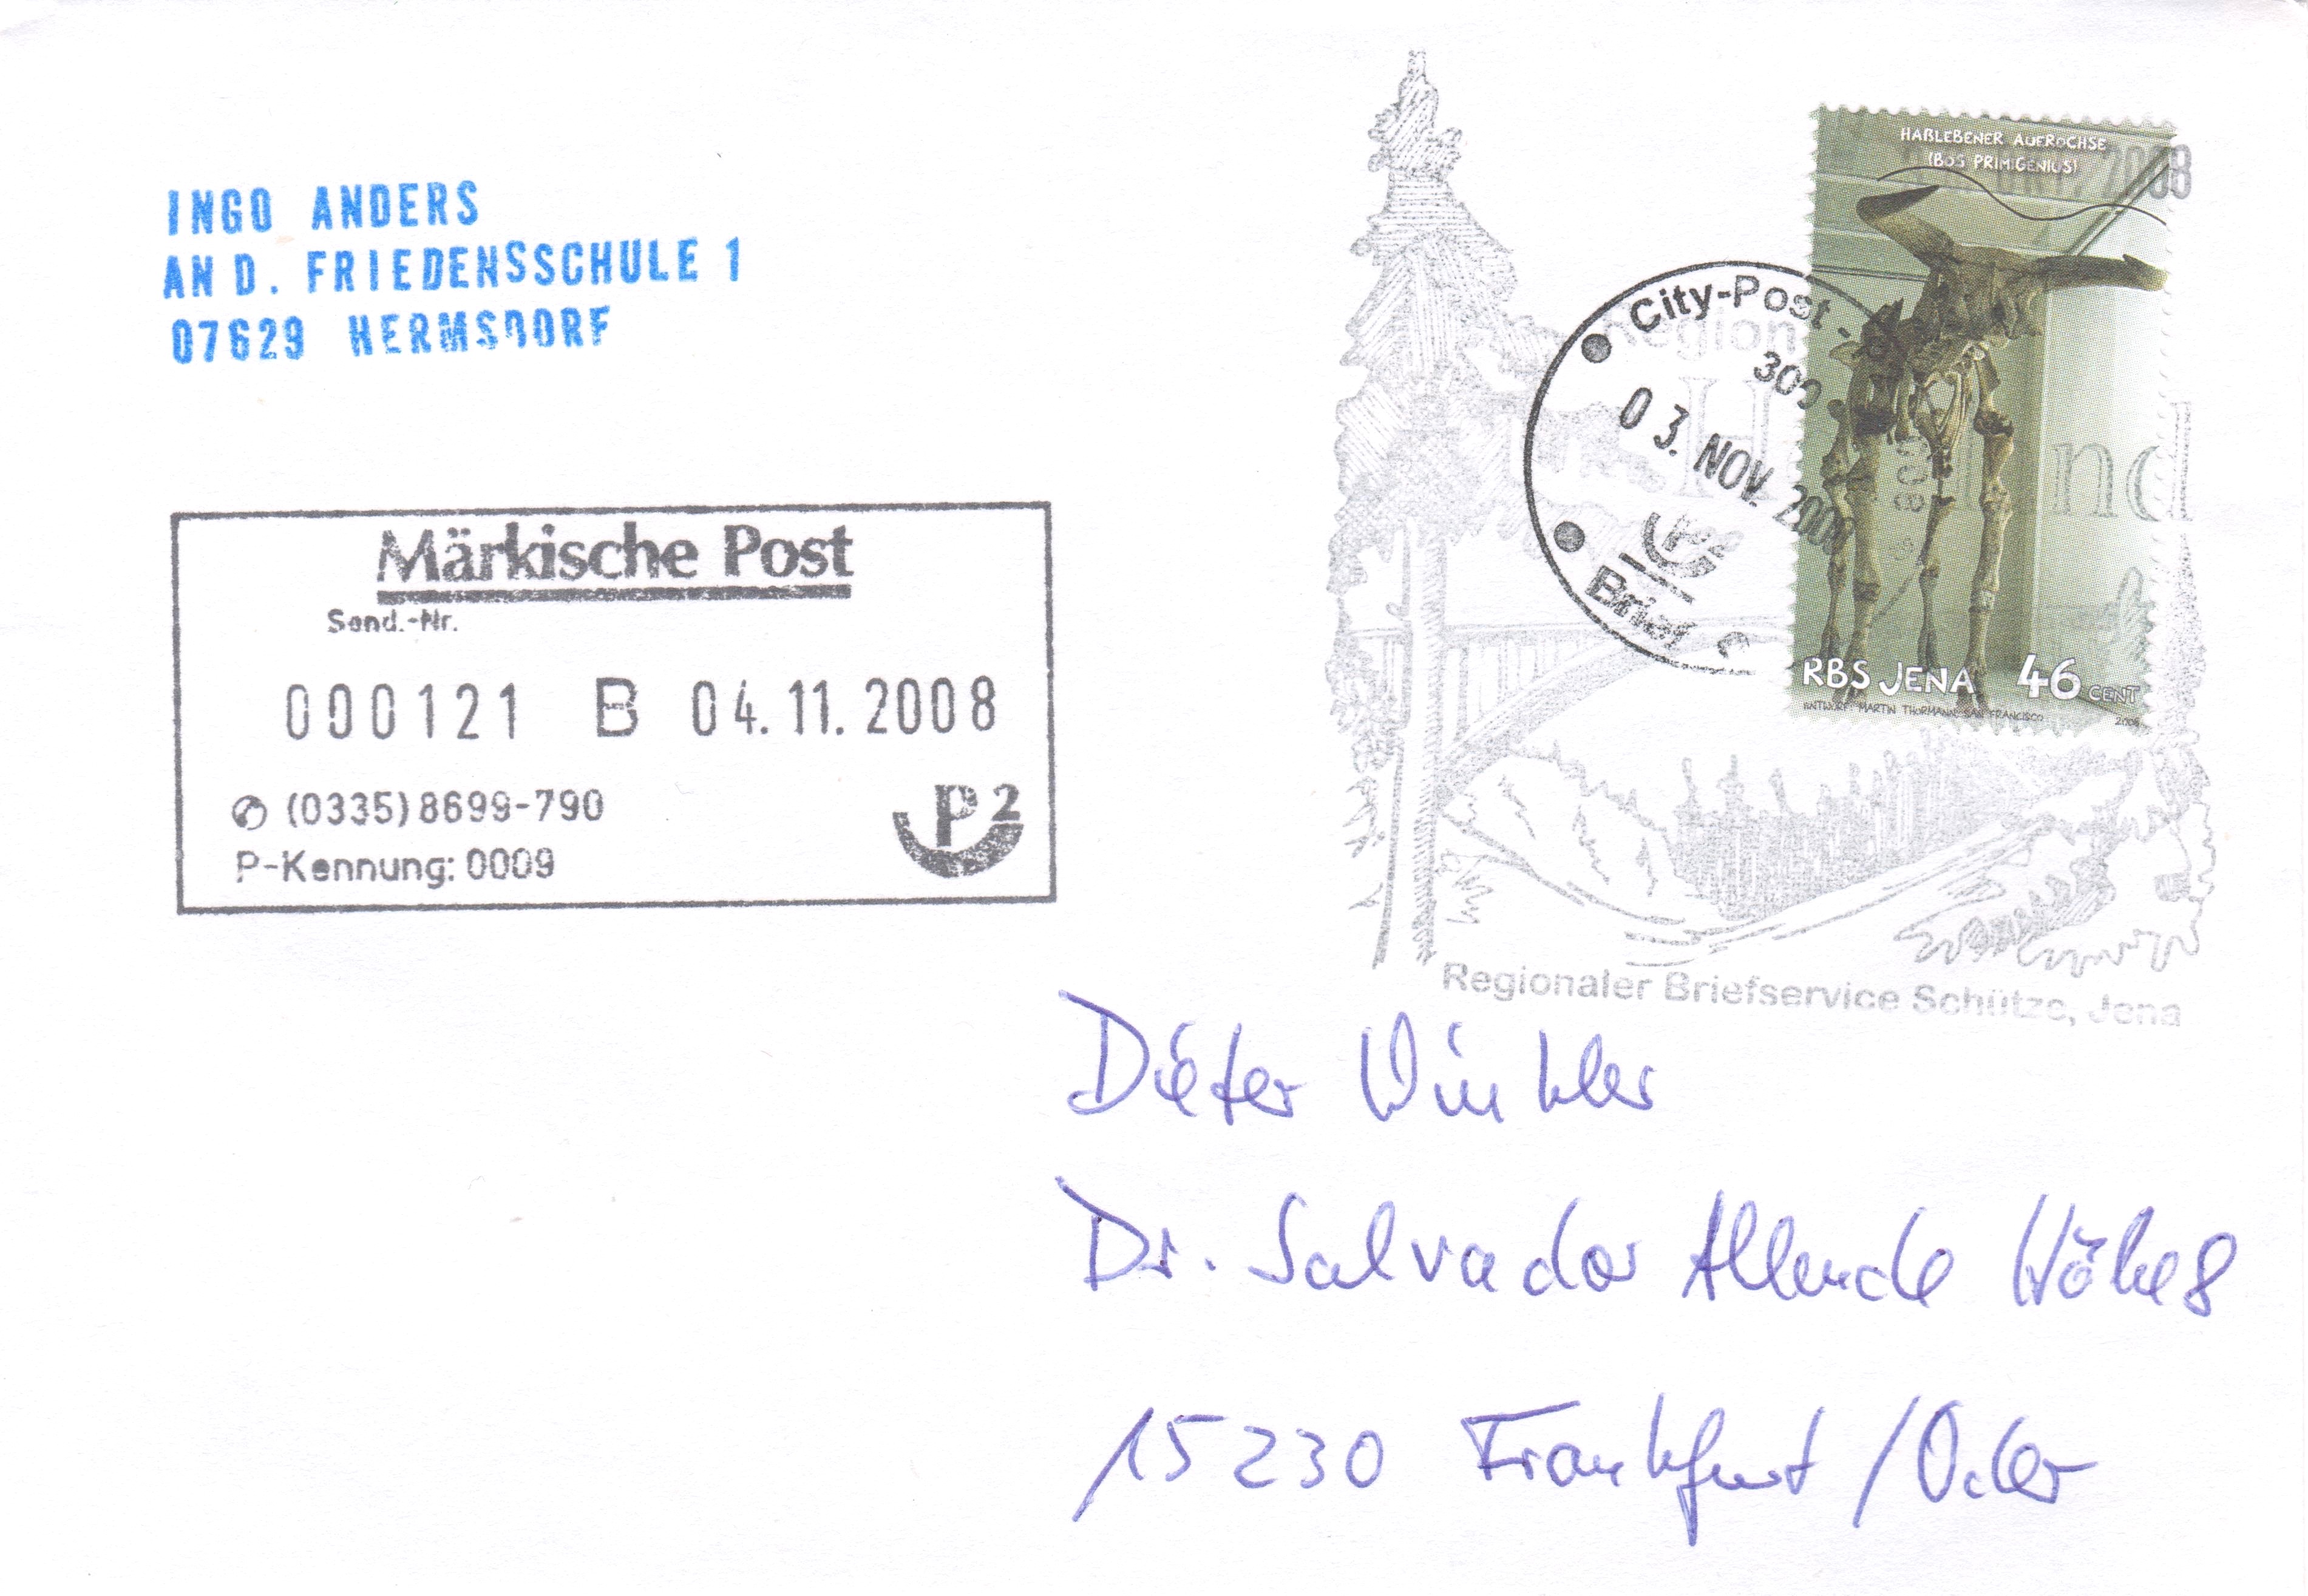 INGO ANDERS
AN D. FRIEDENSSCHULE 1
07629 HERMSDORF
Märkische Post
Send.-Nr.
000121 B 04.11.2008
(0335) 8699-790
P-Kennung: 0009
P2
HAßLEBENER AUEROCHSE
(BOS PRIMIGENIUS)
2008
City-Post -
300
03. NOV. 2008
Brief
RBS JENA 46 CENT
ENTWURF: MARTIN THORMANN, SAN FRANCISCO 2008
Regionaler Briefservice Schütze, Jena
Dieter Winkler
Dr. Salvador Allende Höhe 8
15230 Frankfurt / Oder